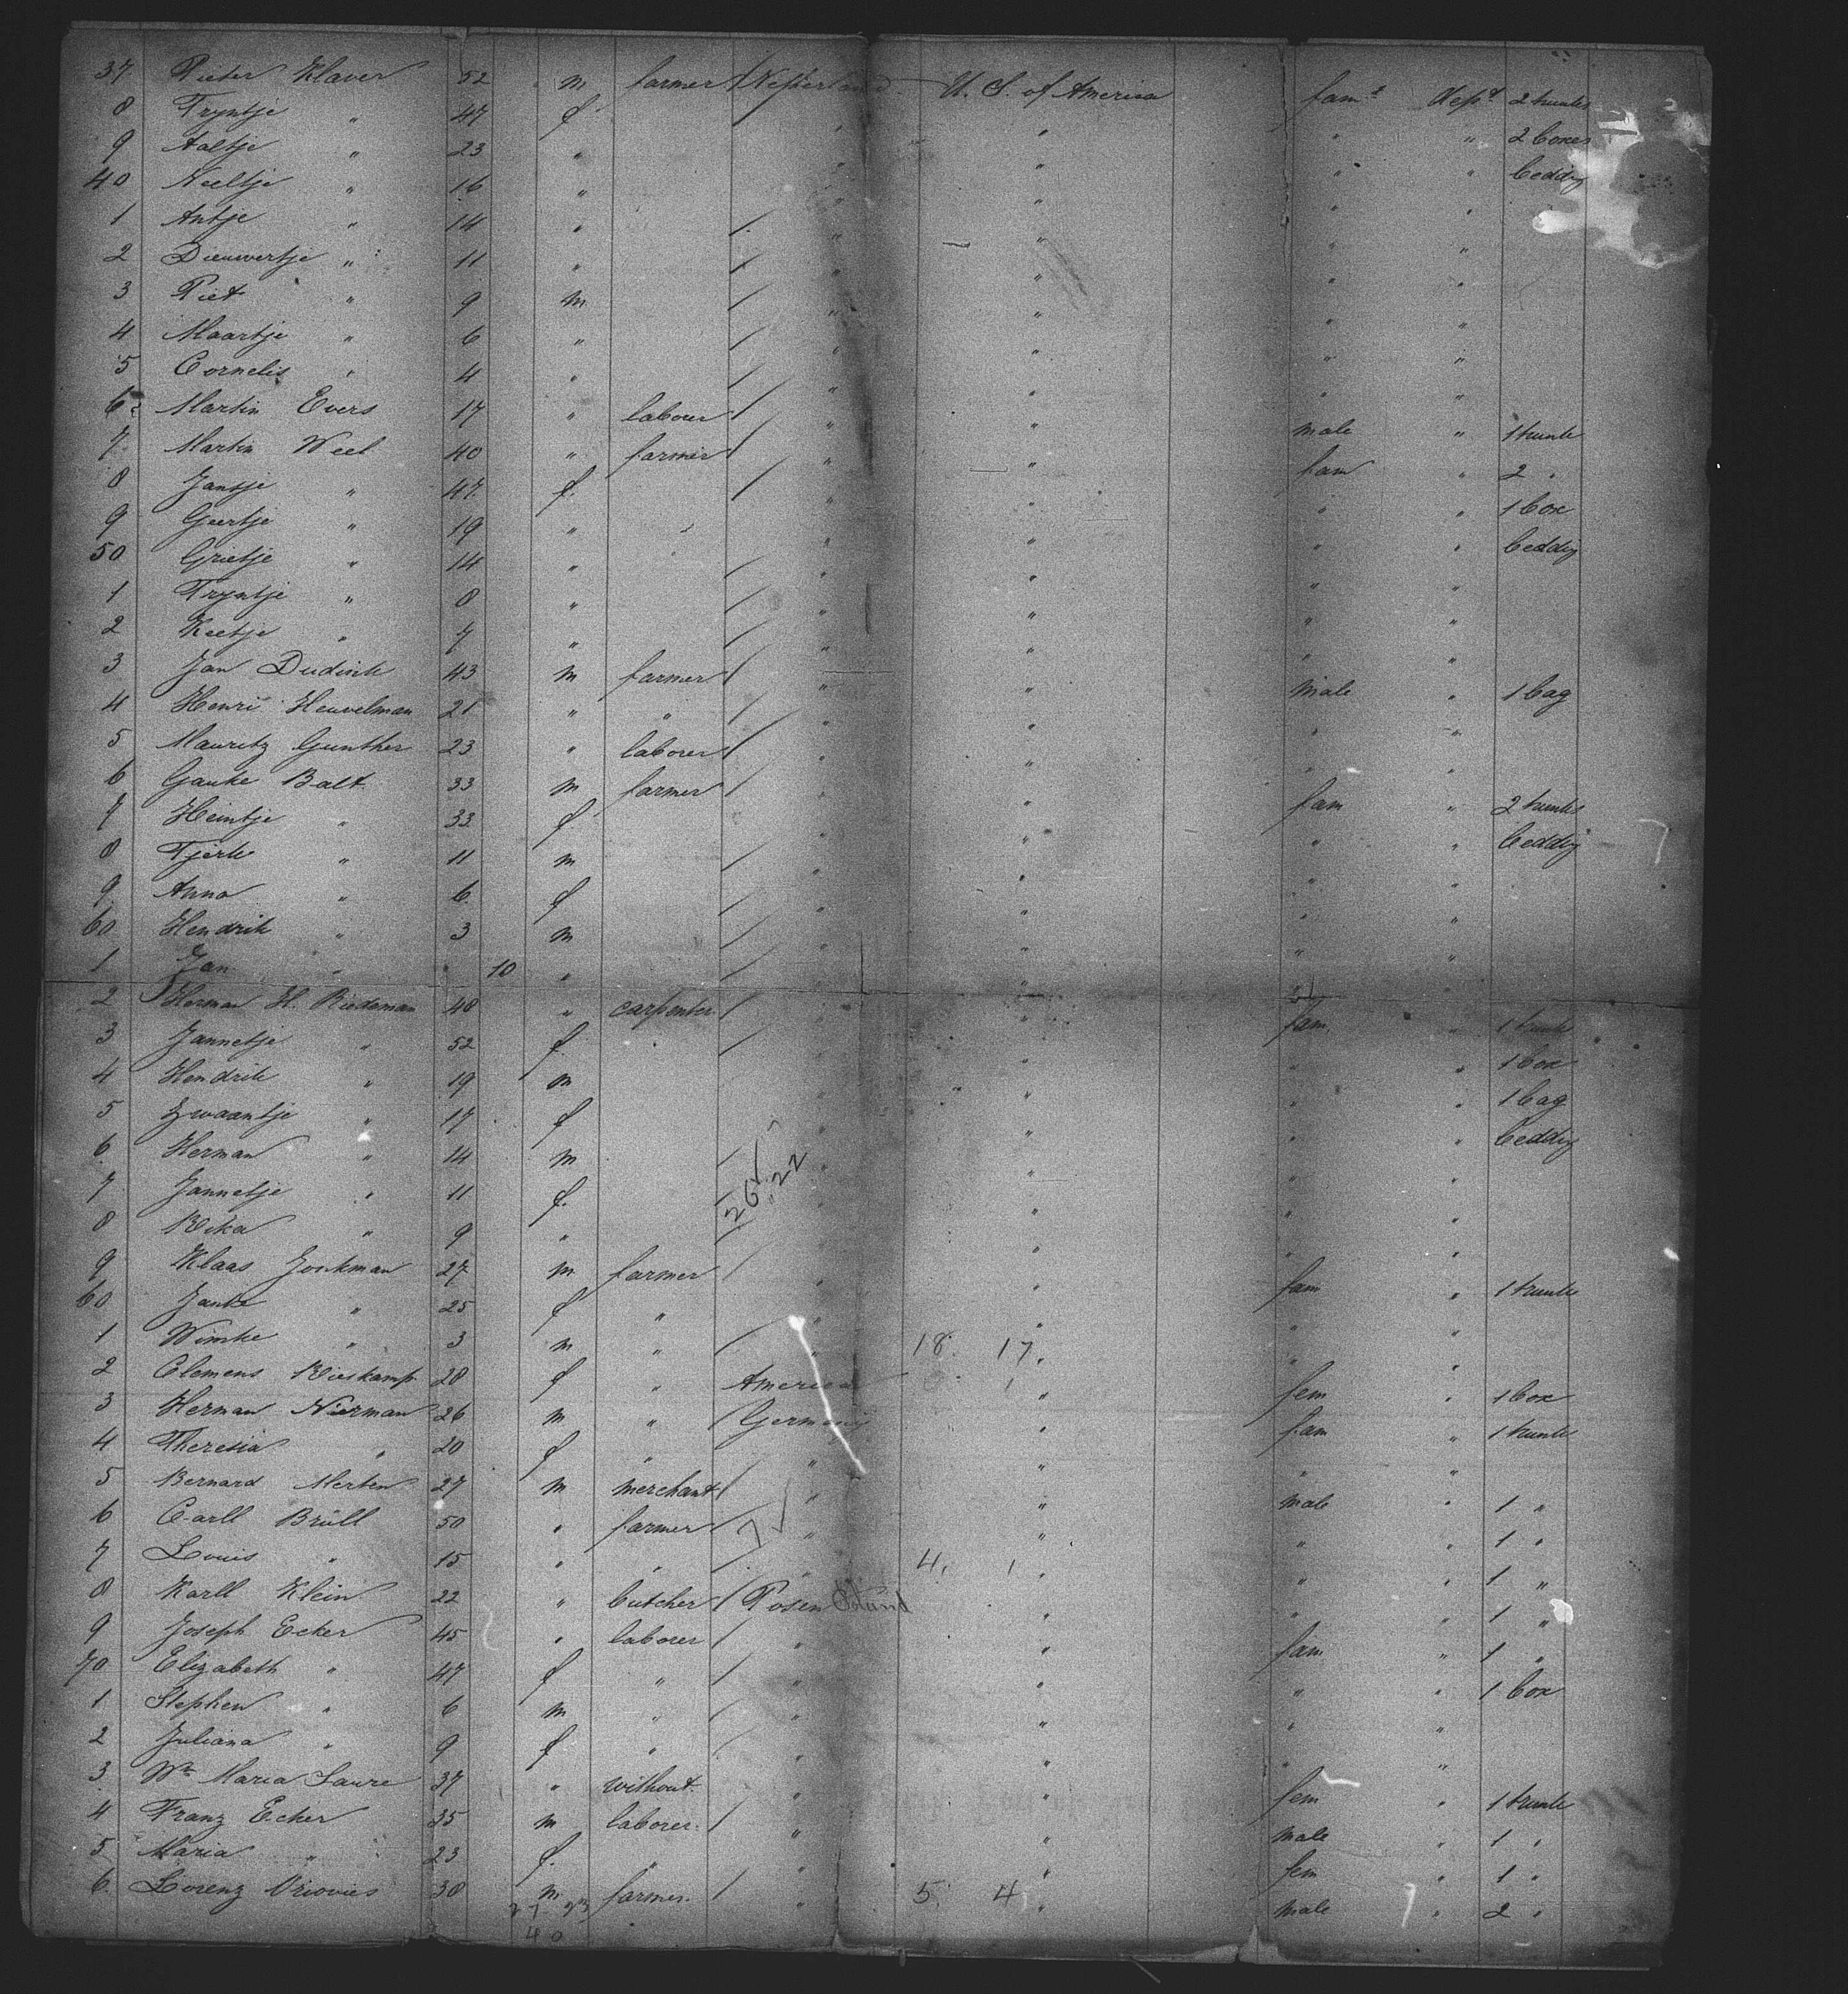 37 Pieter Klaver 52 m farmer Netherland U. S. of America fam.s dept. 2 trunks
8 Tryntje " 47 f " " " " 2 boxes
9 Aaltje " 23 " " " " " bedding
40 Neeltje " 16 " " " " "
1 Antje " 14 " " " " "
2 Dieuwertje " 11 " " " " "
3 Piet " 9 m " " " "
4 Maartje " 6 " " " " "
5 Cornelis " 4 " " " " "
6 Martin Evers 17 " labour " " male " 1 trunk
7 Martin Weel 40 " farmer " " fam " 2 "
8 Jansje " 47 f. " " " " 1 box
9 Geertje " 19 " " " " " bedding
50 Grietje " 14 " " " " "
1 Tryntje " 8 " " " " "
2 Keetje " 7 " " " " "
3 Jan Dudink 43 m farmer " " male " 1 bag
4 Henri Heuvelman 21 " " " " " "
5 Mauritz Gunther 23 " laborer " " " "
6 Gauke Balt 33 m farmer " " fam " 2 trunks
7 Heintje " 33 f " " " " bedding
8 Tjerk " 11 m " " " "
9 Anna " 6 f " " " "
60 Hendrik " 3 m " " " "
1 Jan " 10 " " " " "
2 Herman H. Riedeman 48 " carpenter " " fam " 1 trunk
3 Jannetje " 52 f " " " " 1 box
4 Hendrik " 19 m " " " " 1 bag
5 Zwaantje " 17 f " " " " bedding
6 Herman " 14 m " " " "
7 Jannetje " 11 f. " " " "
26 22
8 Reka " 9 " " " " "
9 Klaas Jonkman 27 m farmer " " fam " 1 trunk
60 Janke " 25 f " " " " "
1 Wimke " 3 m " " 18. 17 " " "
2 Clemens Rieskamp 28 f " America " fem " 1 box
3 Herman Nierman 26 m " Germany " fam " 1 trunk
4 Theresia " 20 f " " " " "
5 Bernard Merten 27 m merchant " " male " 1 "
6 Carll Brüll 50 " farmer 7 " " " " 1 "
7 Louis " 15 " " " 4. 1 " " " 1 "
8 Karll Klein 22 " butcher Posen Poland " " " 1 "
9 Joseph Ecker 45 " laborer " " fam " 1 "
70 Elizabeth " 47 f " " " " " 1 box
1 Stephen " 6 m " " " " "
2 Juliana " 9 f " " " " "
3 We Maria Laure 37 " without. " " fem " 1 trunk
4 Franz Ecker 35 m laborer. " " male " 1 "
5 Maria " 23 f. " " " fem " 1 "
6 Lorenz 30 m farmer. " 5. 4 " male " 2 "
27 23
40